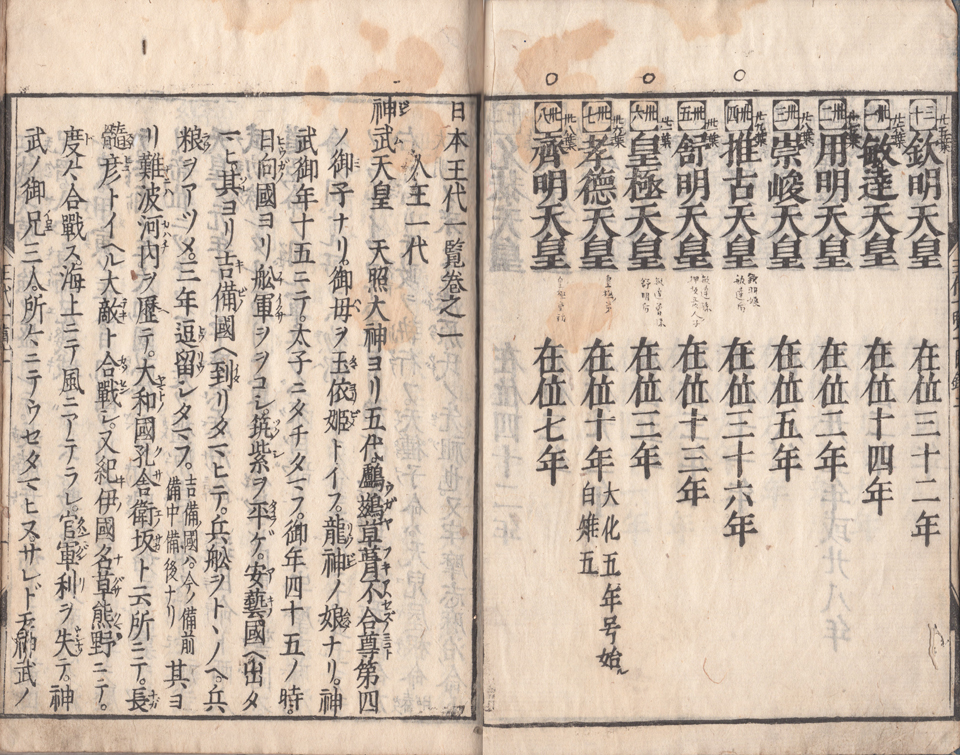 三十 欽明天皇 在位三十二年
卅一 敏達天皇 在位十四年
卅二 用明天皇 在位二年
卅三 崇峻天皇 在位五年
卅四 推古天皇 在位三十六年
卅五 舒明天皇 在位十三年
卅六 皇極天皇 在位三年
卅七 孝德天皇 在位十年 大化五年号始 白雉五
卅八 齊明天皇 在位七年
日本王代一覧巻之一
人王一代
神武天皇 天照大神ヨリ五代鸕鷀草葺不合尊第四
ノ御子ナリ御母ヲ玉依姫トイフ龍神ノ娘ナリ神
武御年十五ニテ太子ニタチタマフ御年四十五ノ時
日向國ヨリ舩軍ヲヲコシ筑紫ヲ平ケ安藝國ヘ出タ
マヒ其ヨリ吉備國ヘ到リタマヒテ兵舩ヲトヽノヘ兵
粮ヲアツメ三年逗留シタマフ 吉備國ハ今ノ備前備中備後ナリ 其ヨ
リ難波河内ヲ歴テ大和國孔舎衛坂ト云所ニテ長
髓彦トイヘル大敵ト合戰シ又紀伊國名草熊野ニテ
度々合戰ス海上ニテ風ニアテラレ官軍利ヲ失テ神
武ノ御兄三人所々ニテウセタマヒヌサレド神武ノ